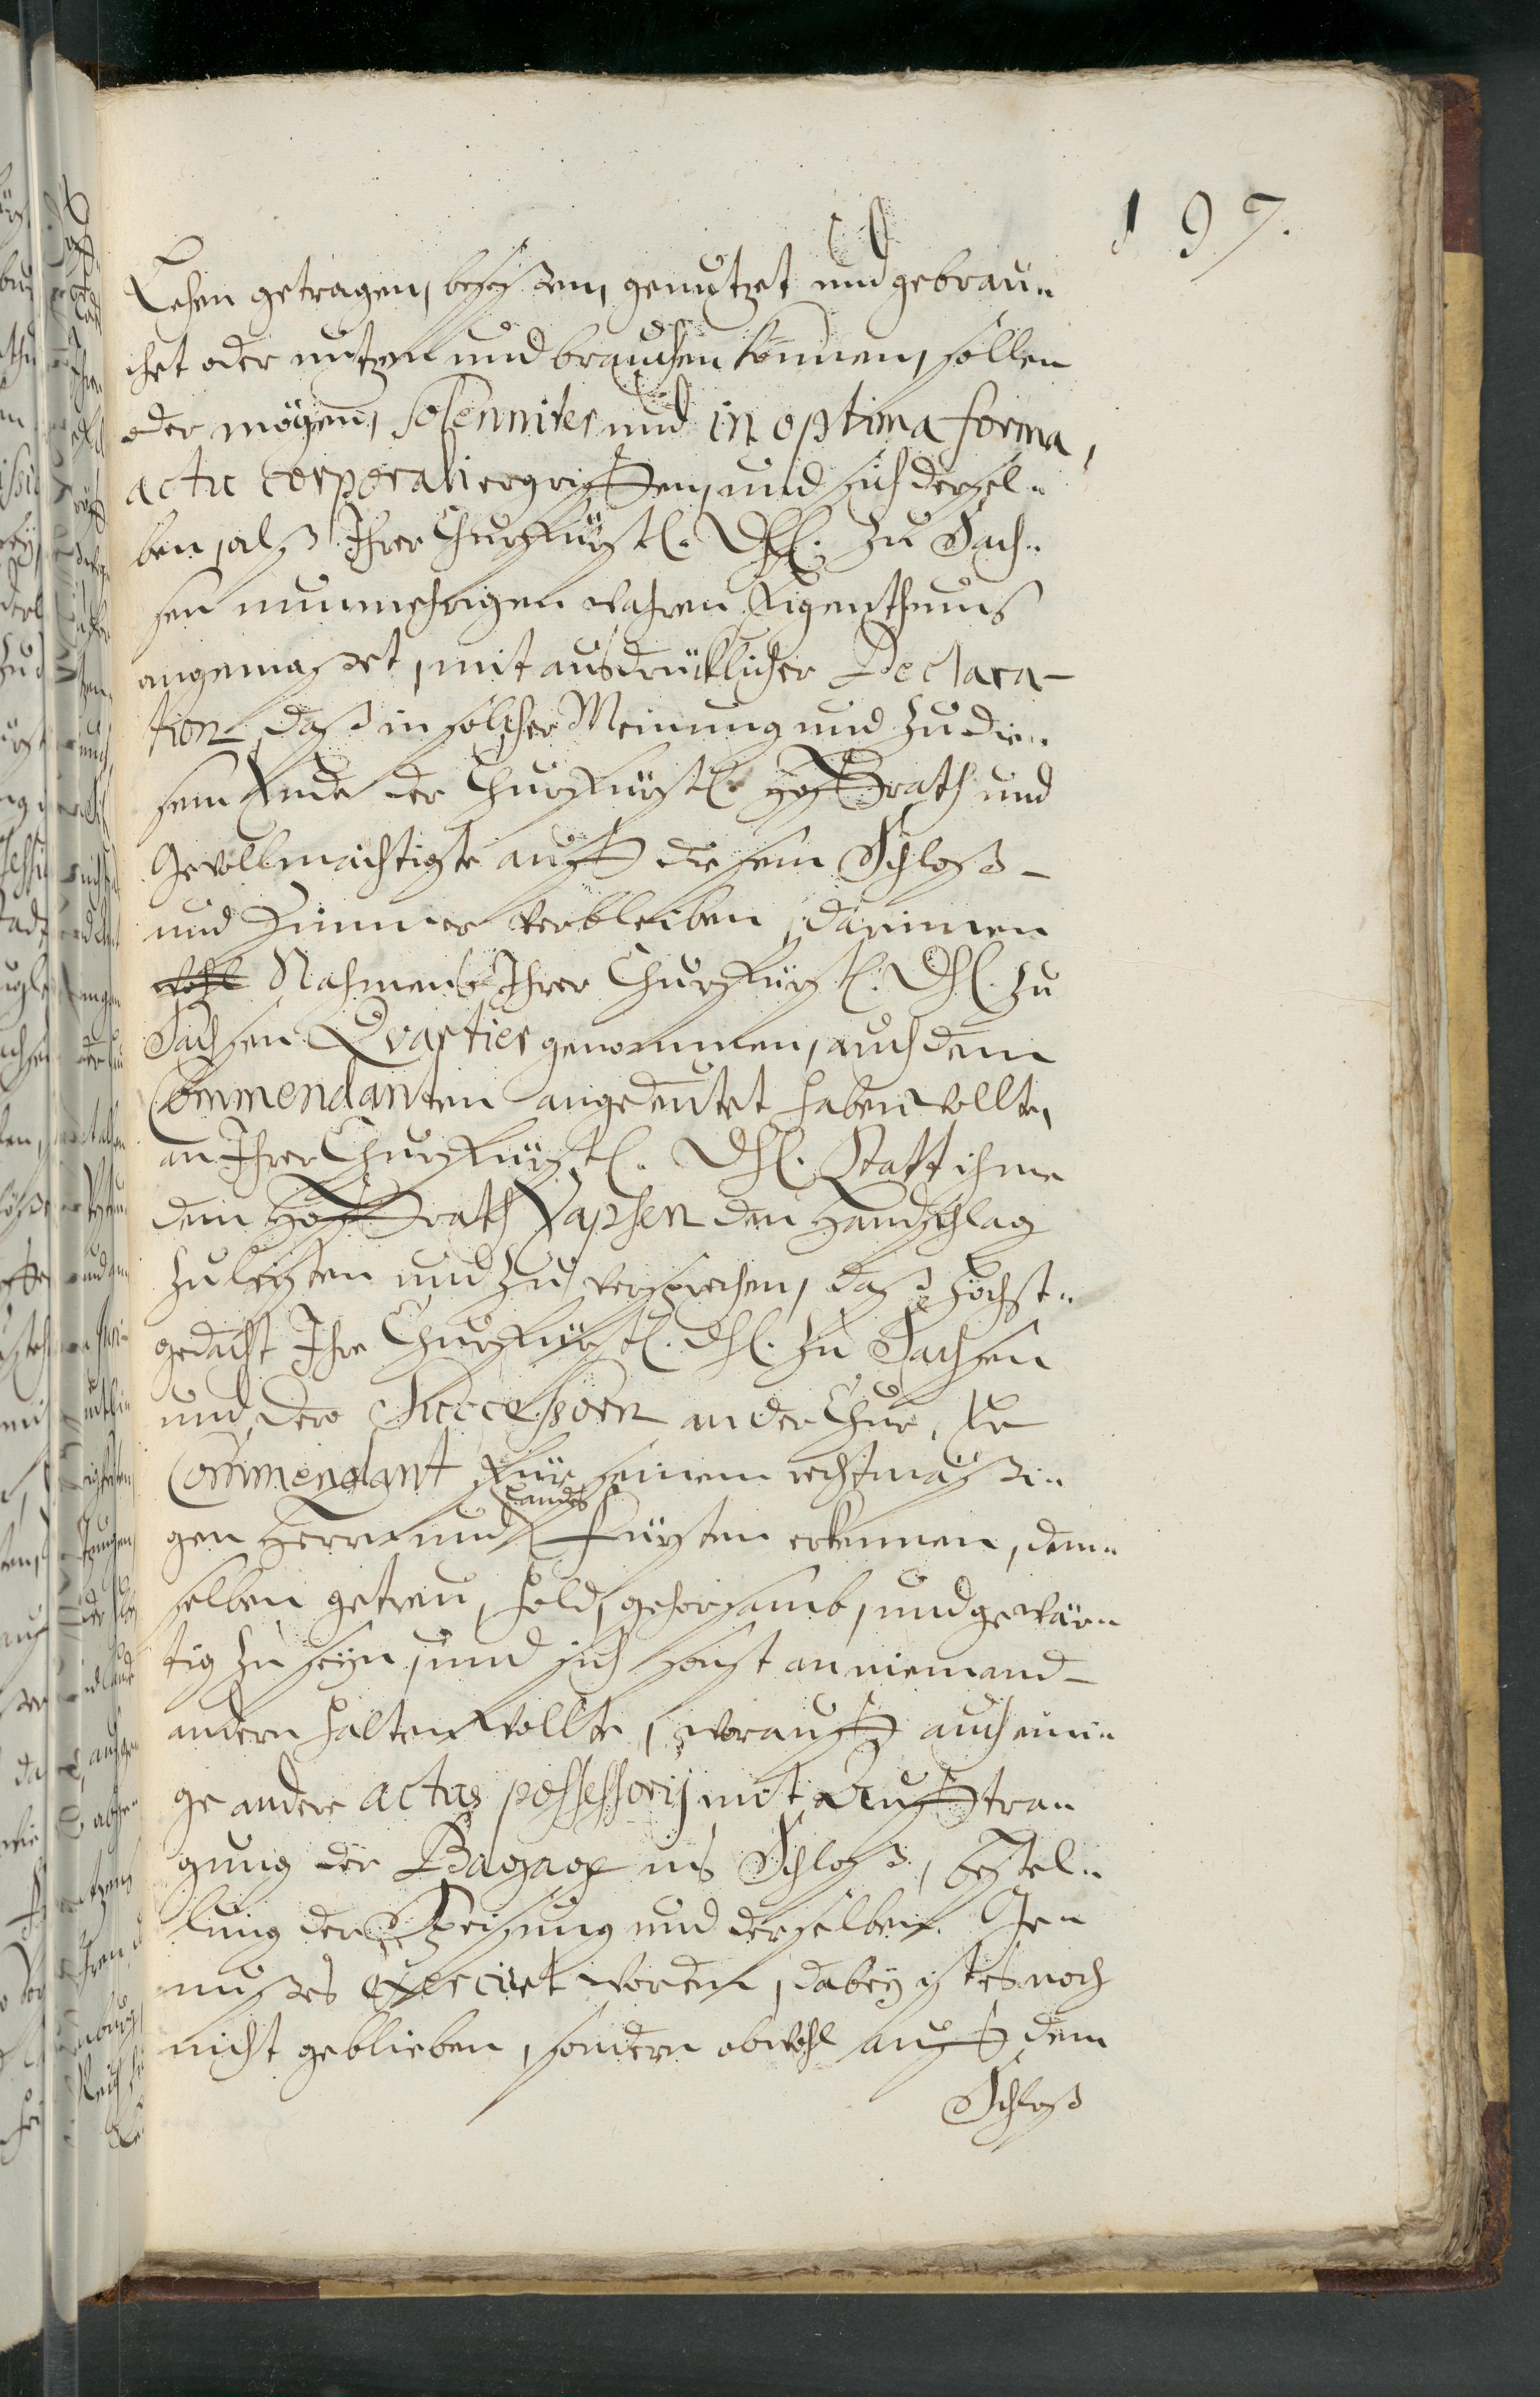 197.
Lehen getragen, besessen, genutzet und gebrau-
chet oder nutzen und brauchen können, sollen
oder mögen, solenniter und in optima forma,
actu corporali ergriffen, und sich dersel-
ben, als Ihrer Churfürstl. Dhl. zu Sach-
sen nunmehrigen wahren Eigenthums
angemaßet, mit ausdrücklicher Declara-
tion, daß in solcher Meinung und zu die-
sem Ende der Churfürstl. Hoffrath und
Gevollmächtigte auff diesem Schloß
und Zimmer verbleiben, darinnen
wohl Nahmens Ihrer Churfürstl. Dhl. zu
Sachsen Qvartier genommen, auch dem
Commendanten angedeutet haben wollte,
an Ihrer Churfürstl. Dhl. Statt ihme
dem Hoffrath Papsen den Handschlag
zu leisten und zu versprechen, daß höchst-
gedacht Ihre Churfürstl. Dhl. zu Sachsen
und dero Successorn an der Chur, Er
Commendant für seinem rechtmäßi-
gen Herrn und Landes Fürsten erkennen, dem-
selben getreu, hold, gehorsamb, und gewär-
tig zu seyn, und sich sonst an niemand
andern halten wollte, worauff auch eini-
ge andere actus possessorij mit Aufftra-
gung der Bagage ins Schloß, Bestel-
lung der Speisung und derselben Ge-
nußes exerciret worden, dabey ist es noch
nicht geblieben, sondern obwohl auff dem
Schloß